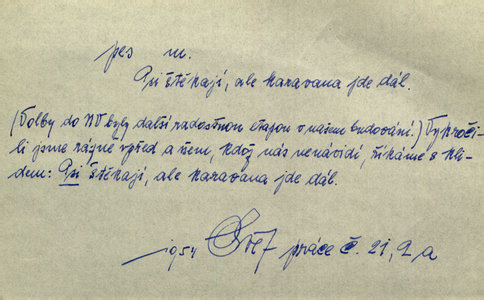 pes m.
Psi štěkají, ale karavana jde dál.
(Volby do NV byly další radostnou etapou v našem budování.) Vykroči-
li jsme rázně vpřed a všem, kdož nás nenávidí, říkáme s kli-
dem: Psi štěkají, ale karavana jde dál.
1954 Svět práce č. 21, 2 a